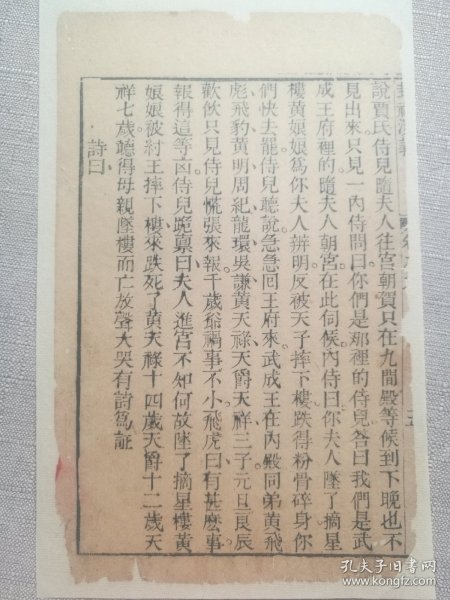 封神演義
五
說賈氏侍兒隨夫人往宮朝賀只在九間殿等候到下晚也不
見出來只見一內侍問曰你們是那裡的侍兒答曰我們是武
成王府裡的隨夫人朝宮在此伺候內侍曰你夫人墜了摘星
樓黃娘娘爲你夫人辨明反被天子摔下樓跌得粉骨碎身你
們快去罷侍兒聽說急急回王府來武成王在內殿同弟黃飛
彪飛豹黃明周紀龍環吳謙黃天祿天爵天祥三子元旦良辰
歡飲只見侍兒慌張來報千歲爺禍事不小飛虎曰有甚麽事
報得這等凶侍兒跪禀曰夫人進宮不知何故墜了摘星樓黃
娘娘被紂王摔下樓來跌死了黃天祿十四歲天爵十二歲天
祥七歲聽得母親墜樓而亡放聲大哭有詩爲証
詩曰
孔夫子旧书网
www.kongfz.com